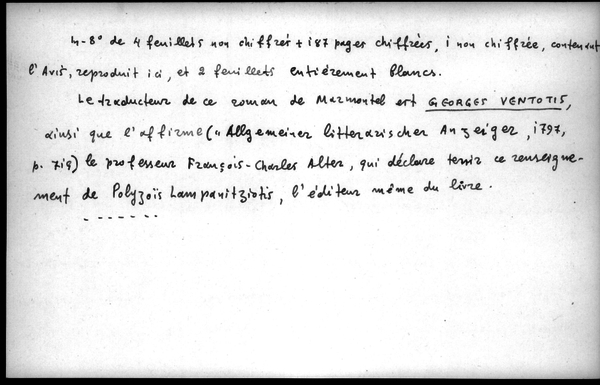 in-8° de 4 feuillets non chiffrés + 187 pages chiffrées, 1 non chiffrée, contenant
l'Avis, reproduit ici, et 2 feuillets entiérement blancs.
Le traducteur de ce roman de Marmontel est GEORGES VENTOTIS,
ainsi que l'affirme („Allgemeiner litterarischer Anzeiger, 1797,
p. 719) le professeur François-Charles Alter, qui déclare tenir ce renseigne-
ment de Polyzoïs Lampanitziotis, l'éditeur même du livre.
- - - - - - -